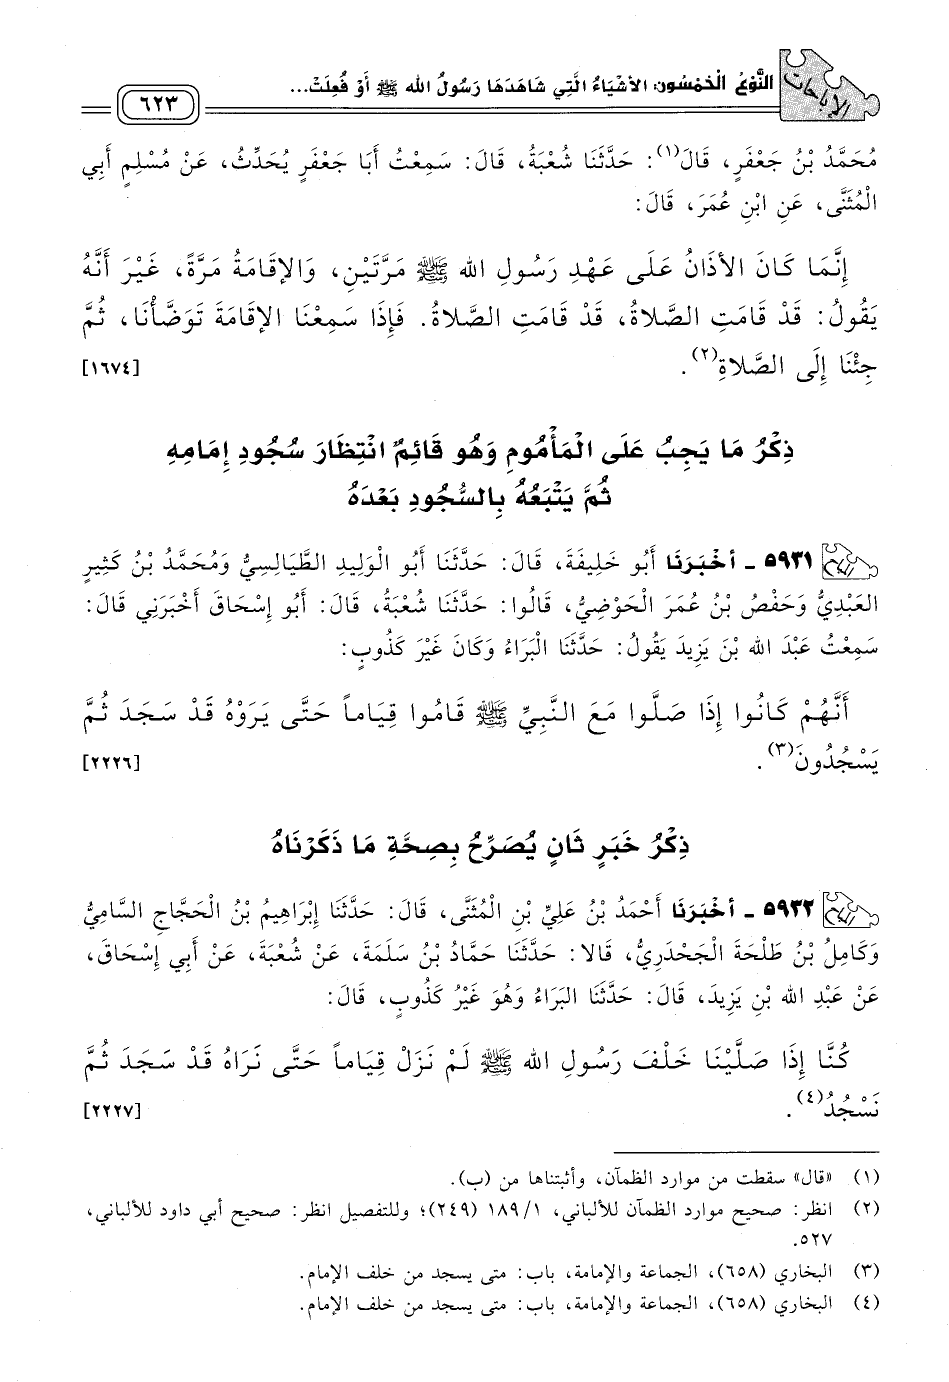 الإباحات
النَّوْعُ الْخَمْسُون: الأشْيَاءُ الَّتِي شَاهَدَهَا رَسُولُ الله ﷺ أَوْ فُعِلَتْ...
٦٢٣
مُحَمَّدُ بْنُ جَعْفَرٍ، قَالَ(١): حَدَّثَنَا شُعْبَةُ، قَالَ: سَمِعْتُ أَبَا جَعْفَرٍ يُحَدِّثُ، عَنْ مُسْلِمٍ أَبِي
الْمُثَنَّى، عَنِ ابْنِ عُمَرَ، قَالَ:
إِنَّمَا كَانَ الأَذَانُ عَلَى عَهْدِ رَسُولِ الله ﷺ مَرَّتَيْنِ، وَالإقَامَةُ مَرَّةً، غَيْرَ أَنَّهُ
يَقُولُ: قَدْ قَامَتِ الصَّلاةُ، قَدْ قَامَتِ الصَّلاةُ. فَإِذَا سَمِعْنَا الإقَامَةَ تَوَضَّأْنَا، ثُمَّ
جِئْنَا إِلَى الصَّلاةِ(٢). [١٦٧٤]
ذِكْرُ مَا يَجِبُ عَلَى الْمَأْمُومِ وَهُو قَائِمٌ انْتِظَارَ سُجُودِ إِمَامِهِ
ثُمَّ يَتْبَعُهُ بِالسُّجُودِ بَعْدَهُ
٥٩٣١ - أخْبَرَنَا أَبُو خَلِيفَةَ، قَالَ: حَدَّثَنَا أَبُو الْوَلِيدِ الطَّيَالِسِيُّ وَمُحَمَّدُ بْنُ كَثِيرٍ
العَبْدِيُّ وَحَفْصُ بْنُ عُمَرَ الْحَوْضِيُّ، قَالُوا: حَدَّثَنَا شُعْبَةُ، قَالَ: أَبُو إِسْحَاقَ أَخْبَرَنِي قَالَ:
سَمِعْتُ عَبْدَ الله بْنَ يَزِيدَ يَقُولُ: حَدَّثَنَا الْبَرَاءُ وَكَانَ غَيْرَ كَذُوبٍ:
أَنَّهُمْ كَانُوا إِذَا صَلَّوا مَعَ النَّبِيِّ ﷺ قَامُوا قِيَاماً حَتَّى يَرَوْهُ قَدْ سَجَدَ ثُمَّ
يَسْجُدُونَ(٣). [٢٢٢٦]
ذِكْرُ خَبَرٍ ثَانٍ يُصَرِّحُ بِصِحَّةِ مَا ذَكَرْنَاهُ
٥٩٣٢ - أخْبَرَنَا أَحْمَدُ بْنُ عَلِيِّ بْنِ الْمُثَنَّى، قَالَ: حَدَّثَنَا إِبْرَاهِيمُ بْنُ الْحَجَّاجِ السَّامِيُّ
وَكَامِلُ بْنُ طَلْحَةَ الْجَحْدَرِيُّ، قَالا: حَدَّثَنَا حَمَّادُ بْنُ سَلَمَةَ، عَنْ شُعْبَةَ، عَنْ أَبِي إِسْحَاقَ،
عَنْ عَبْدِ الله بْنِ يَزِيدَ، قَالَ: حَدَّثَنَا البَرَاءُ وَهُوَ غَيْرُ كَذُوبٍ، قَالَ:
كُنَّا إِذَا صَلَّيْنَا خَلْفَ رَسُولِ الله ﷺ لَمْ نَزَلْ قِيَاماً حَتَّى نَرَاهُ قَدْ سَجَدَ ثُمَّ
نَسْجُدُ(٤). [٢٢٢٧]
(١) «قال» سقطت من موارد الظمآن، وأثبتناها من (ب).
(٢) انظر: صحيح موارد الظمآن للألباني، ١٨٩/١ (٢٤٩)؛ وللتفصيل انظر: صحيح أبي داود للألباني،
٥٢٧.
(٣) البخاري (٦٥٨)، الجماعة والإمامة، باب: متى يسجد من خلف الإمام.
(٤) البخاري (٦٥٨)، الجماعة والإمامة، باب: متى يسجد من خلف الإمام.